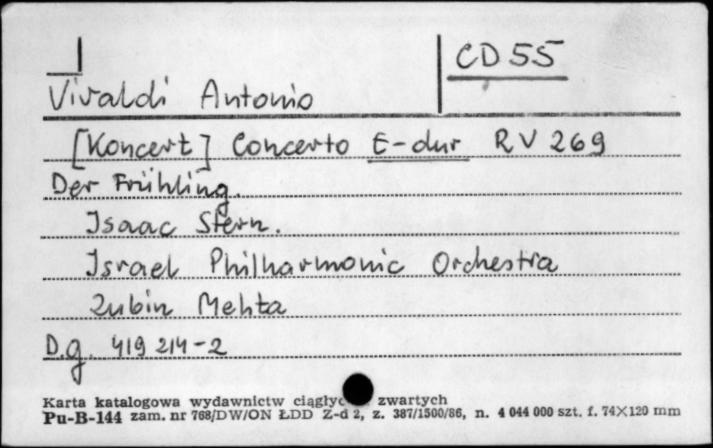 CD 55
Vivaldi Antonio
[Koncert] Concerto E-dur RV 269
Der Frühling.
Isaac Stern.
Israel Philharmonic Orchestra
Zubin Mehta
D.g. 419 214-2
Karta katalogowa wydawnictw zwartych
Pu-B-144 zam. nr 768/DW/ON ŁDD Z-d 2, z. 387/1500/86, n. 4 044 000 szt. f. 74X120 mm